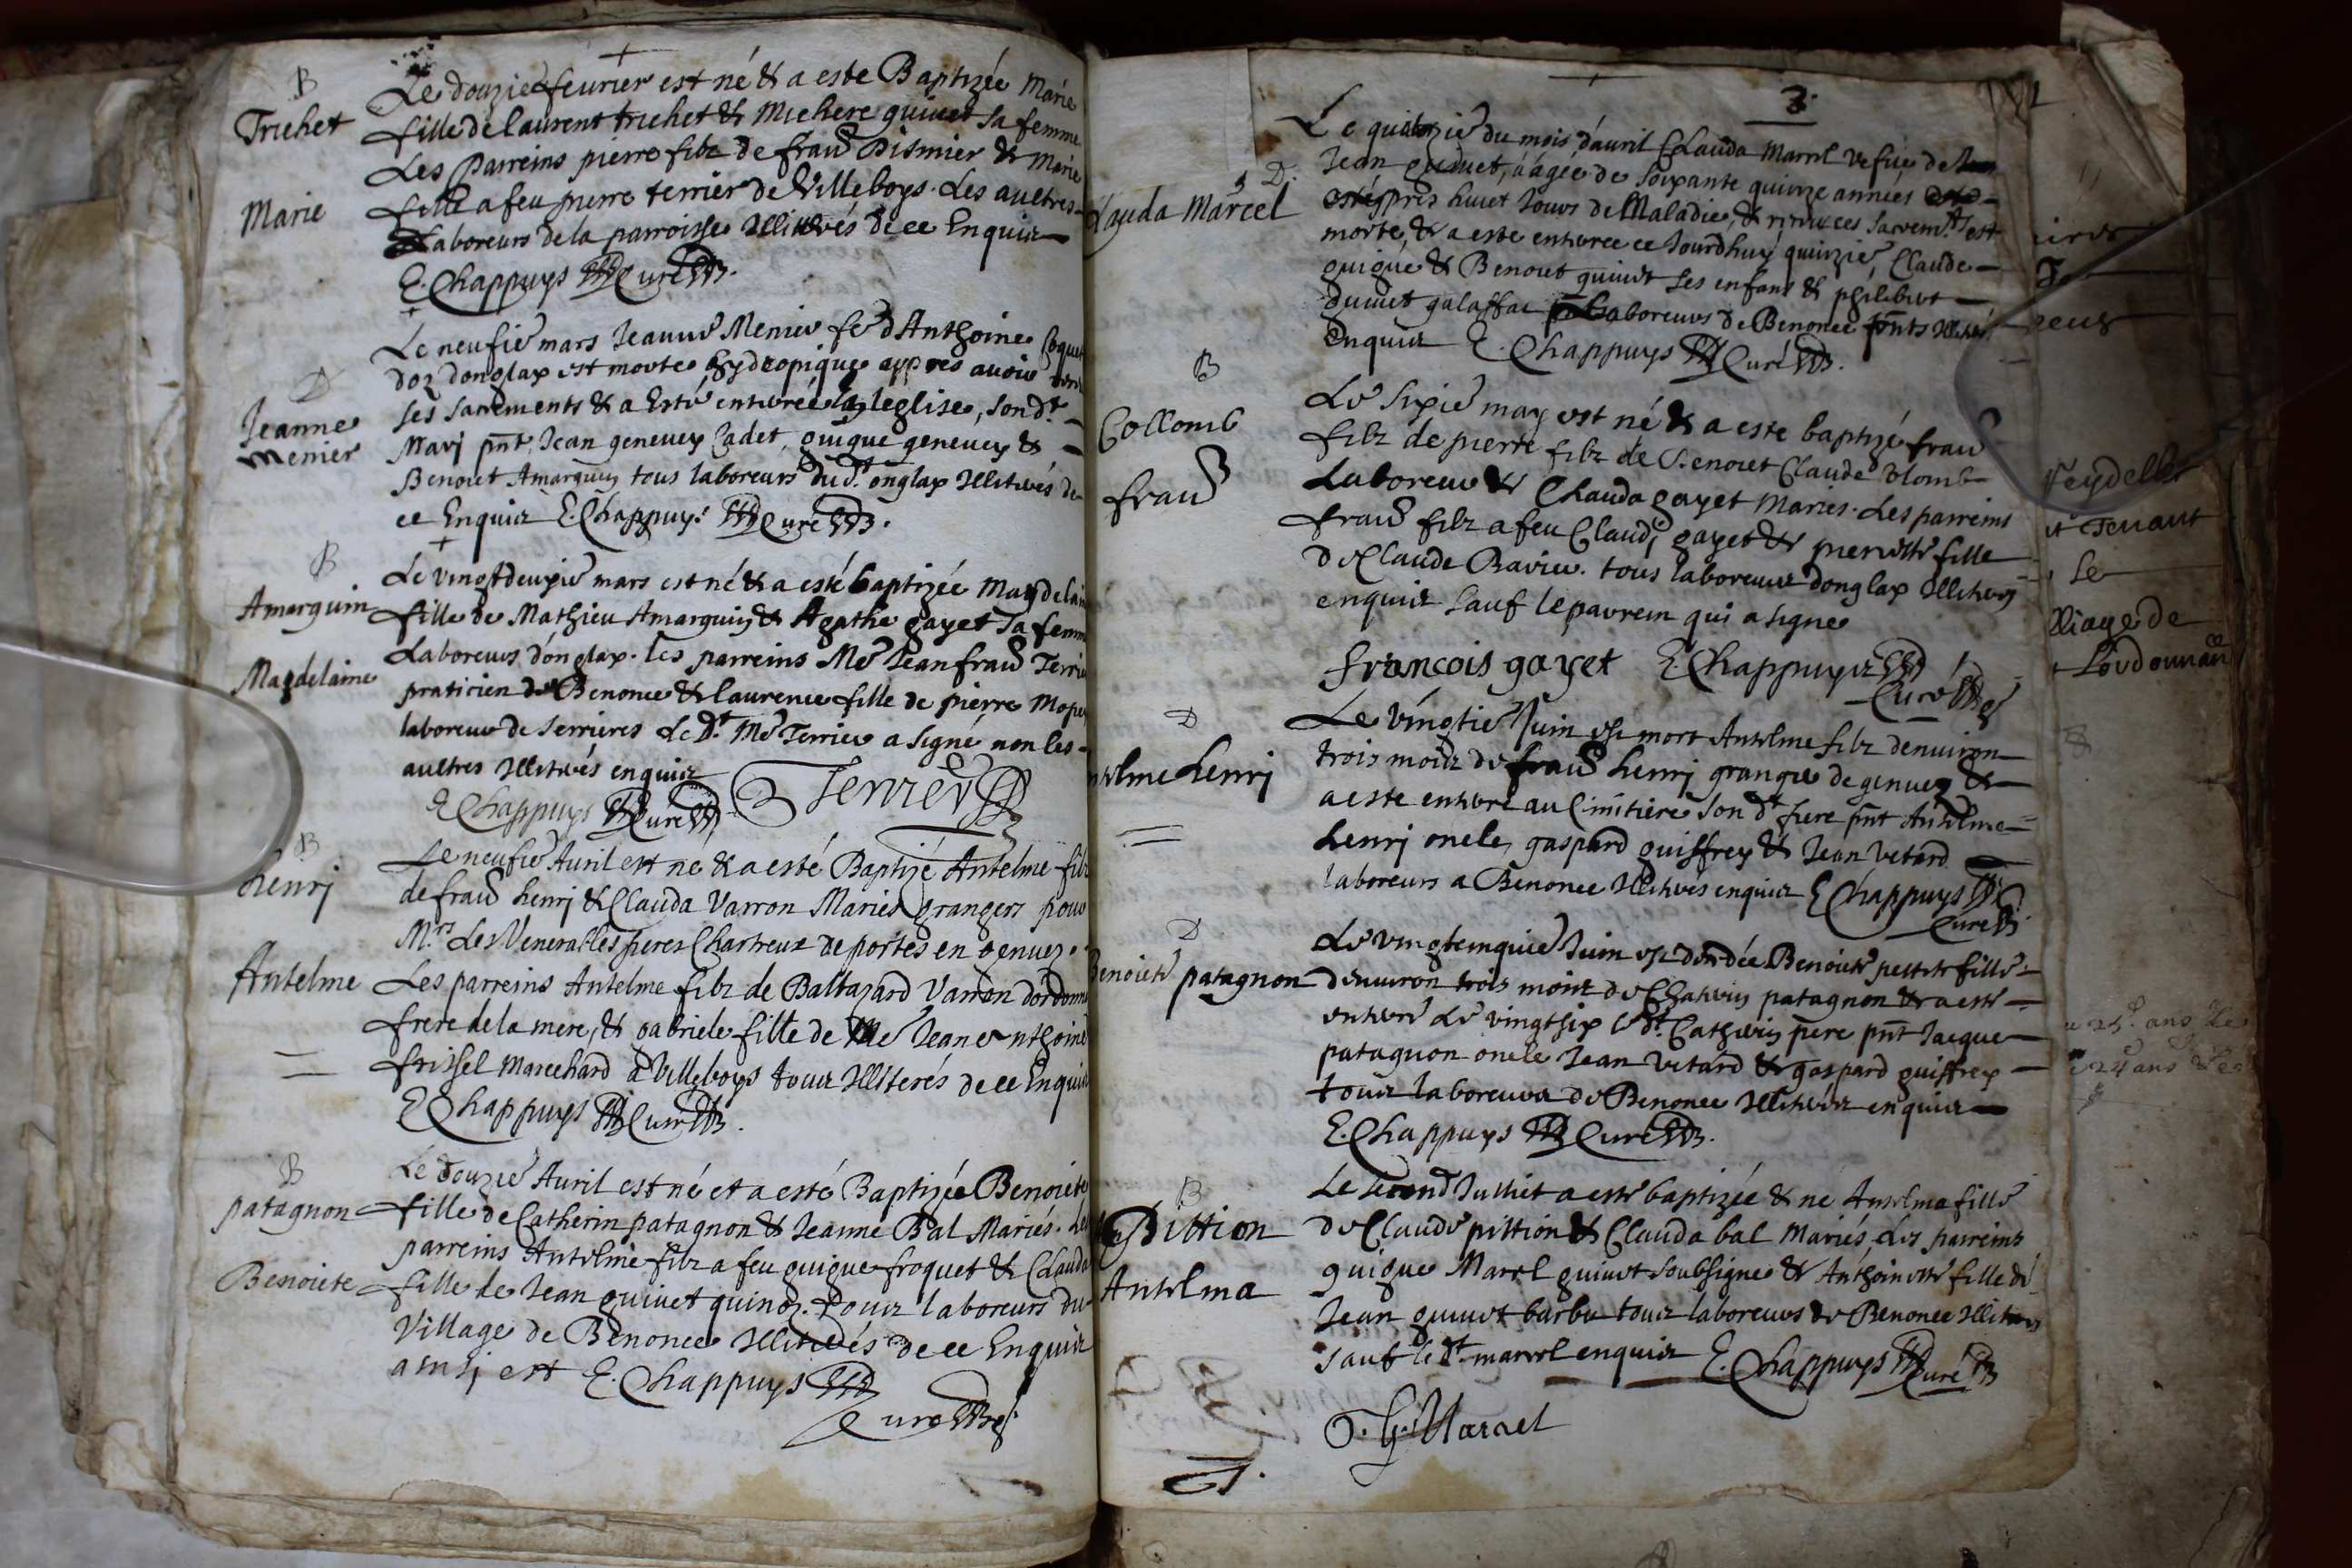 B
Trichet
Marie
Le douzie feurier est né & a este Baptizée Marie
fille de laurent trichet & Michere quiuet sa femme
Les Parreins pierre filz de frans Dismier & Marie
fille a feu pierre terrier de Villeboys. Les aultres
Laboreurs de la parroisse Illiterés de ce Enquis
E. Chappuys Curé
D
Jeanne
Menier
Le neufie mars Jeanne Menier fe d'Anthoine
doz donglax est morte hydropique appres auoir
ses sacrements & a Esté enterrée leglise, son dt
Mary pnt Jean geneuey Cadet, guigue geneuey &
Benoit Amarguin tous laboreurs du dt onglax Illiterés de
ce Enquiz E. Chappuys Curé
B
Amarguin
Magdelaine
Le vingtdeuxie mars est né & a esté baptizée Magdelaine
fille de Mathieu Amarguin & Agathe gayet sa femme
Laboreurs donglax. les parreins Me Jean frans Terrier
praticien de Benonce & laurence fille de pierre
laboreur de Serrieres Le Dt Me Terrier a signé non les
aultres Illiterés enquiz
E Chappuys Curé Terrier
B
henrj
Antelme
Le neufie Auril est né & a esté Baptizé Antelme filz
de frans henrj & Clauda Varron Mariés grangers pour
Mrs Les Venerables peres Chartreux de portes en genuez.
Les parreins Antelme filz de Baltazard Varron
frere de la mere, & gabriele fille de Me Jean Anthoine
frissel Marechard a Villeboys touz Illiterés de ce Enquiz
E Chappuys Curé
B
patagnon
Benoicte
Le douzie Auril est né et a esté Baptizée Benoicte
fille de Catherin patagnon & Jeanne Bal Mariés. Les
parreins Antelme filz a feu guigue froquet & Clauda
fille de Jean quiuet quinoz. touz laboreurs du
Village de Benonce Illiterés de ce Enquiz
ainsj est E. Chappuys
Curé
3.
D.
Clauda Marcel
Le quatorzie du mois d'auril Clauda Marcel Vefue de
Jean quiuet, aagée de soixante quinze années
appres huict Jours de Maladie, & est
morte, & a este enterree ce Jourdhuy quinzie, Claude
guigue & Benoit quiuet ses enfans & philibert
quiuet galaffar laboreurs de Benonce
Enquiz E. Chappuys Curé
B
Collomb
frans
Le sixie may est né & a este baptizé frans
filz de pierre filz de Benoict Claude Colomb
Laboreur & Clauda gayet Mariés. Les parreins
frans filz a feu Claude gayet & pierrette fille
de Claude Rauier. tous laboreurs donglax Illiterés
enquiz sauf le parrein qui a signe
françois gayet E. Chappuys
Curé
D
Antelme henrj
Le vingtie Juin est mort Antelme filz denuiron
trois moiz de frans henrj granger de genuez &
a este enterre au Cimitiere son dt pere pnt Antelme
henrj oncle, gaspard guiffrey & Jean Vetard
laboreurs a Benonce Illiterés enquiz E Chappuys
Curé
D
Benoicte patagnon
Le vingtcinquie Juin est decedée Benoicte petite fille
denuiron trois moiz de Catherin patagnon & a este
enterré Le vingtsix le dt Catherin pere pnt Jacque
patagnon oncle Jean Vetard & gaspard guiffrey
touz laboreurs de Benonce Illiterez enquiz
E. Chappuys Curé
B
Pittion
Antelma
Le second Julliet a este baptizée & ne Antelma fille
de Claude pittion & Clauda bal Mariés Les parreins
guigue Marcel quiuet soubsigne & Anthoinette fille de
Jean quiuet barbu touz laboreurs de Benonce Illiterés
sauf le dt marcel enquiz E. Chappuys Curé
G. Marcel